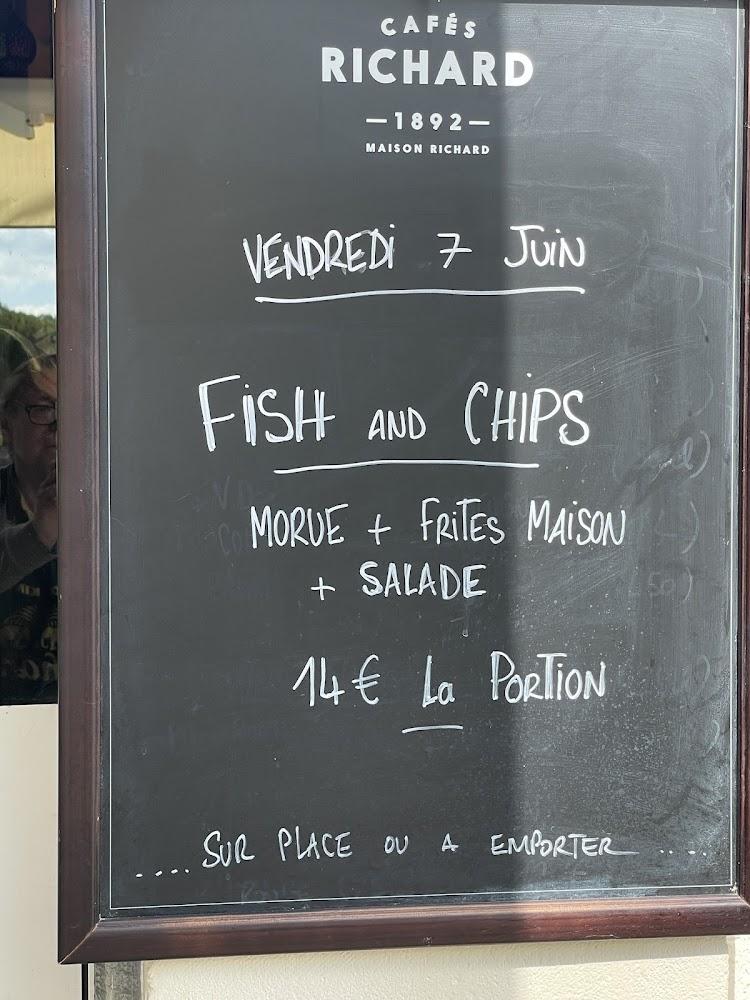 CAFÉS
RICHARD
—1892—
MAISON RICHARD
VENDREDi 7 JUiN
FiSH AND CHiPS
MORUE + FRiTES MAiSON
+ SALADE
14€ La PORTION
.... SUR PLACE OU A EMPORTER ....